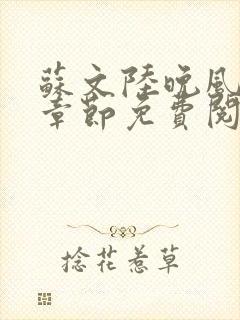 蘇文陸晚風
章節免費閱
捻花惹草